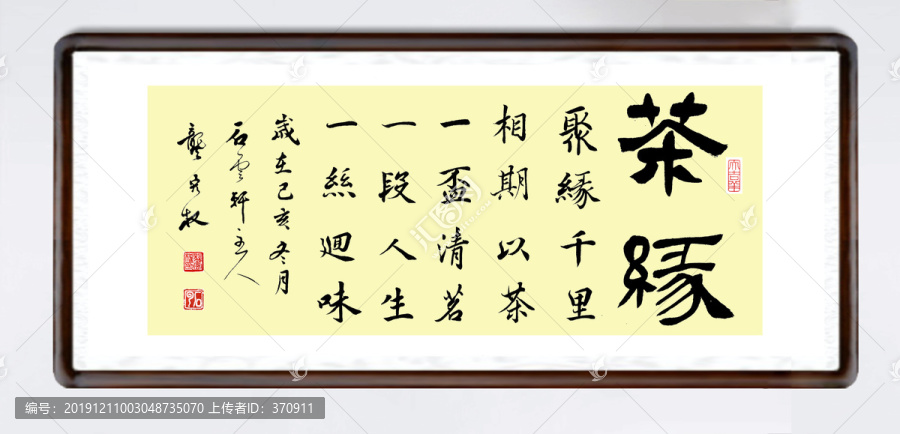 茶緣
聚緣千里
相期以茶
一盃清茗
一段人生
一絲迴味
歲在己亥冬月
石雲軒主人
编号：20191211003048735070 上传者ID：370911